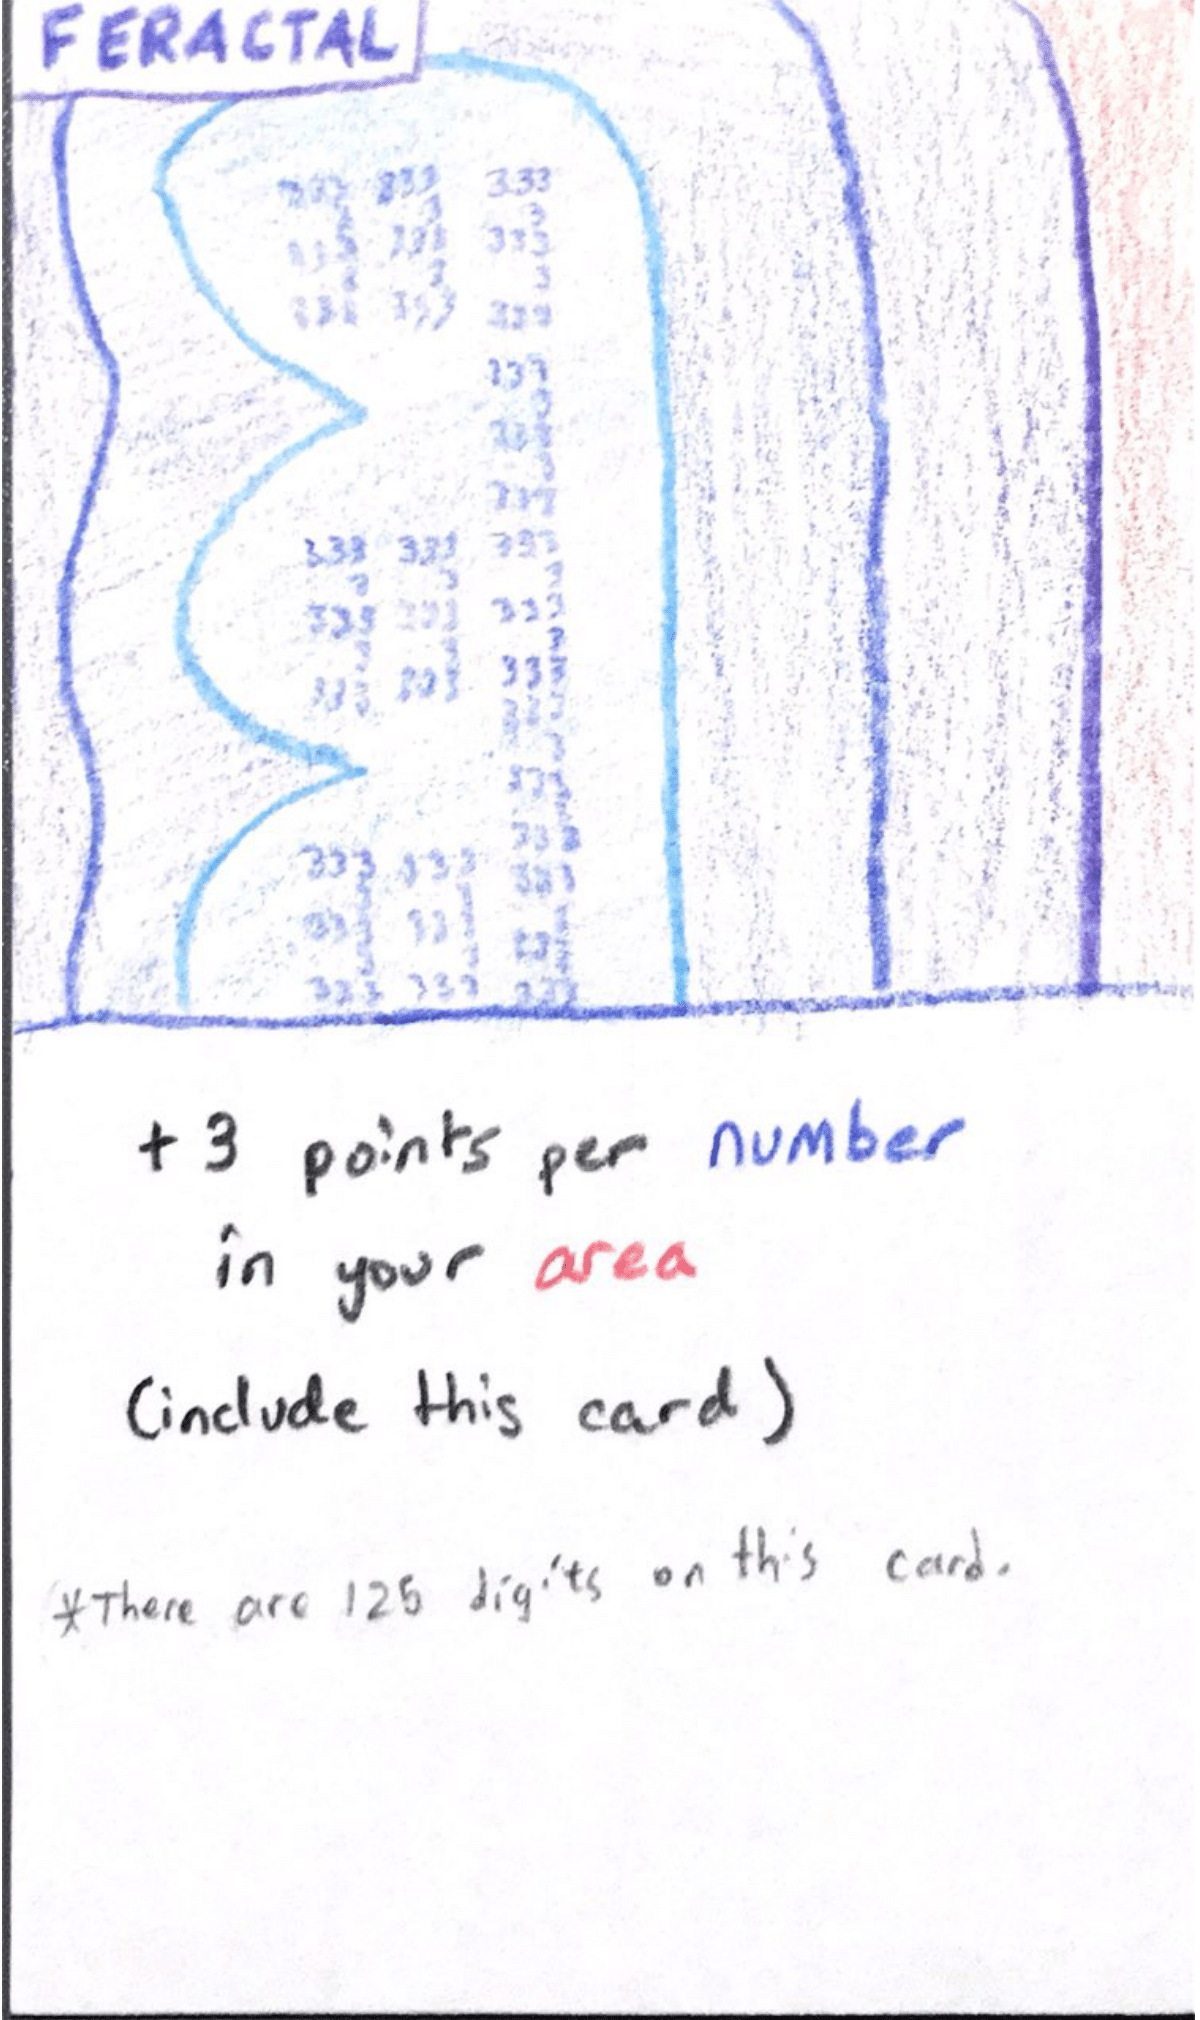 FERACTAL
333 333 333
3 3 3
333 333 333
3 3 3
333 333 333
333
333
333
333 333 333
3 3 3
333 333 333
3 3 3
333 333 333
333
333
333
333 333 333
3 3 3
333 333 333
3 3 3
333 333 333
+3 points per number
in your area
(include this card)
*There are 125 digits on this card.